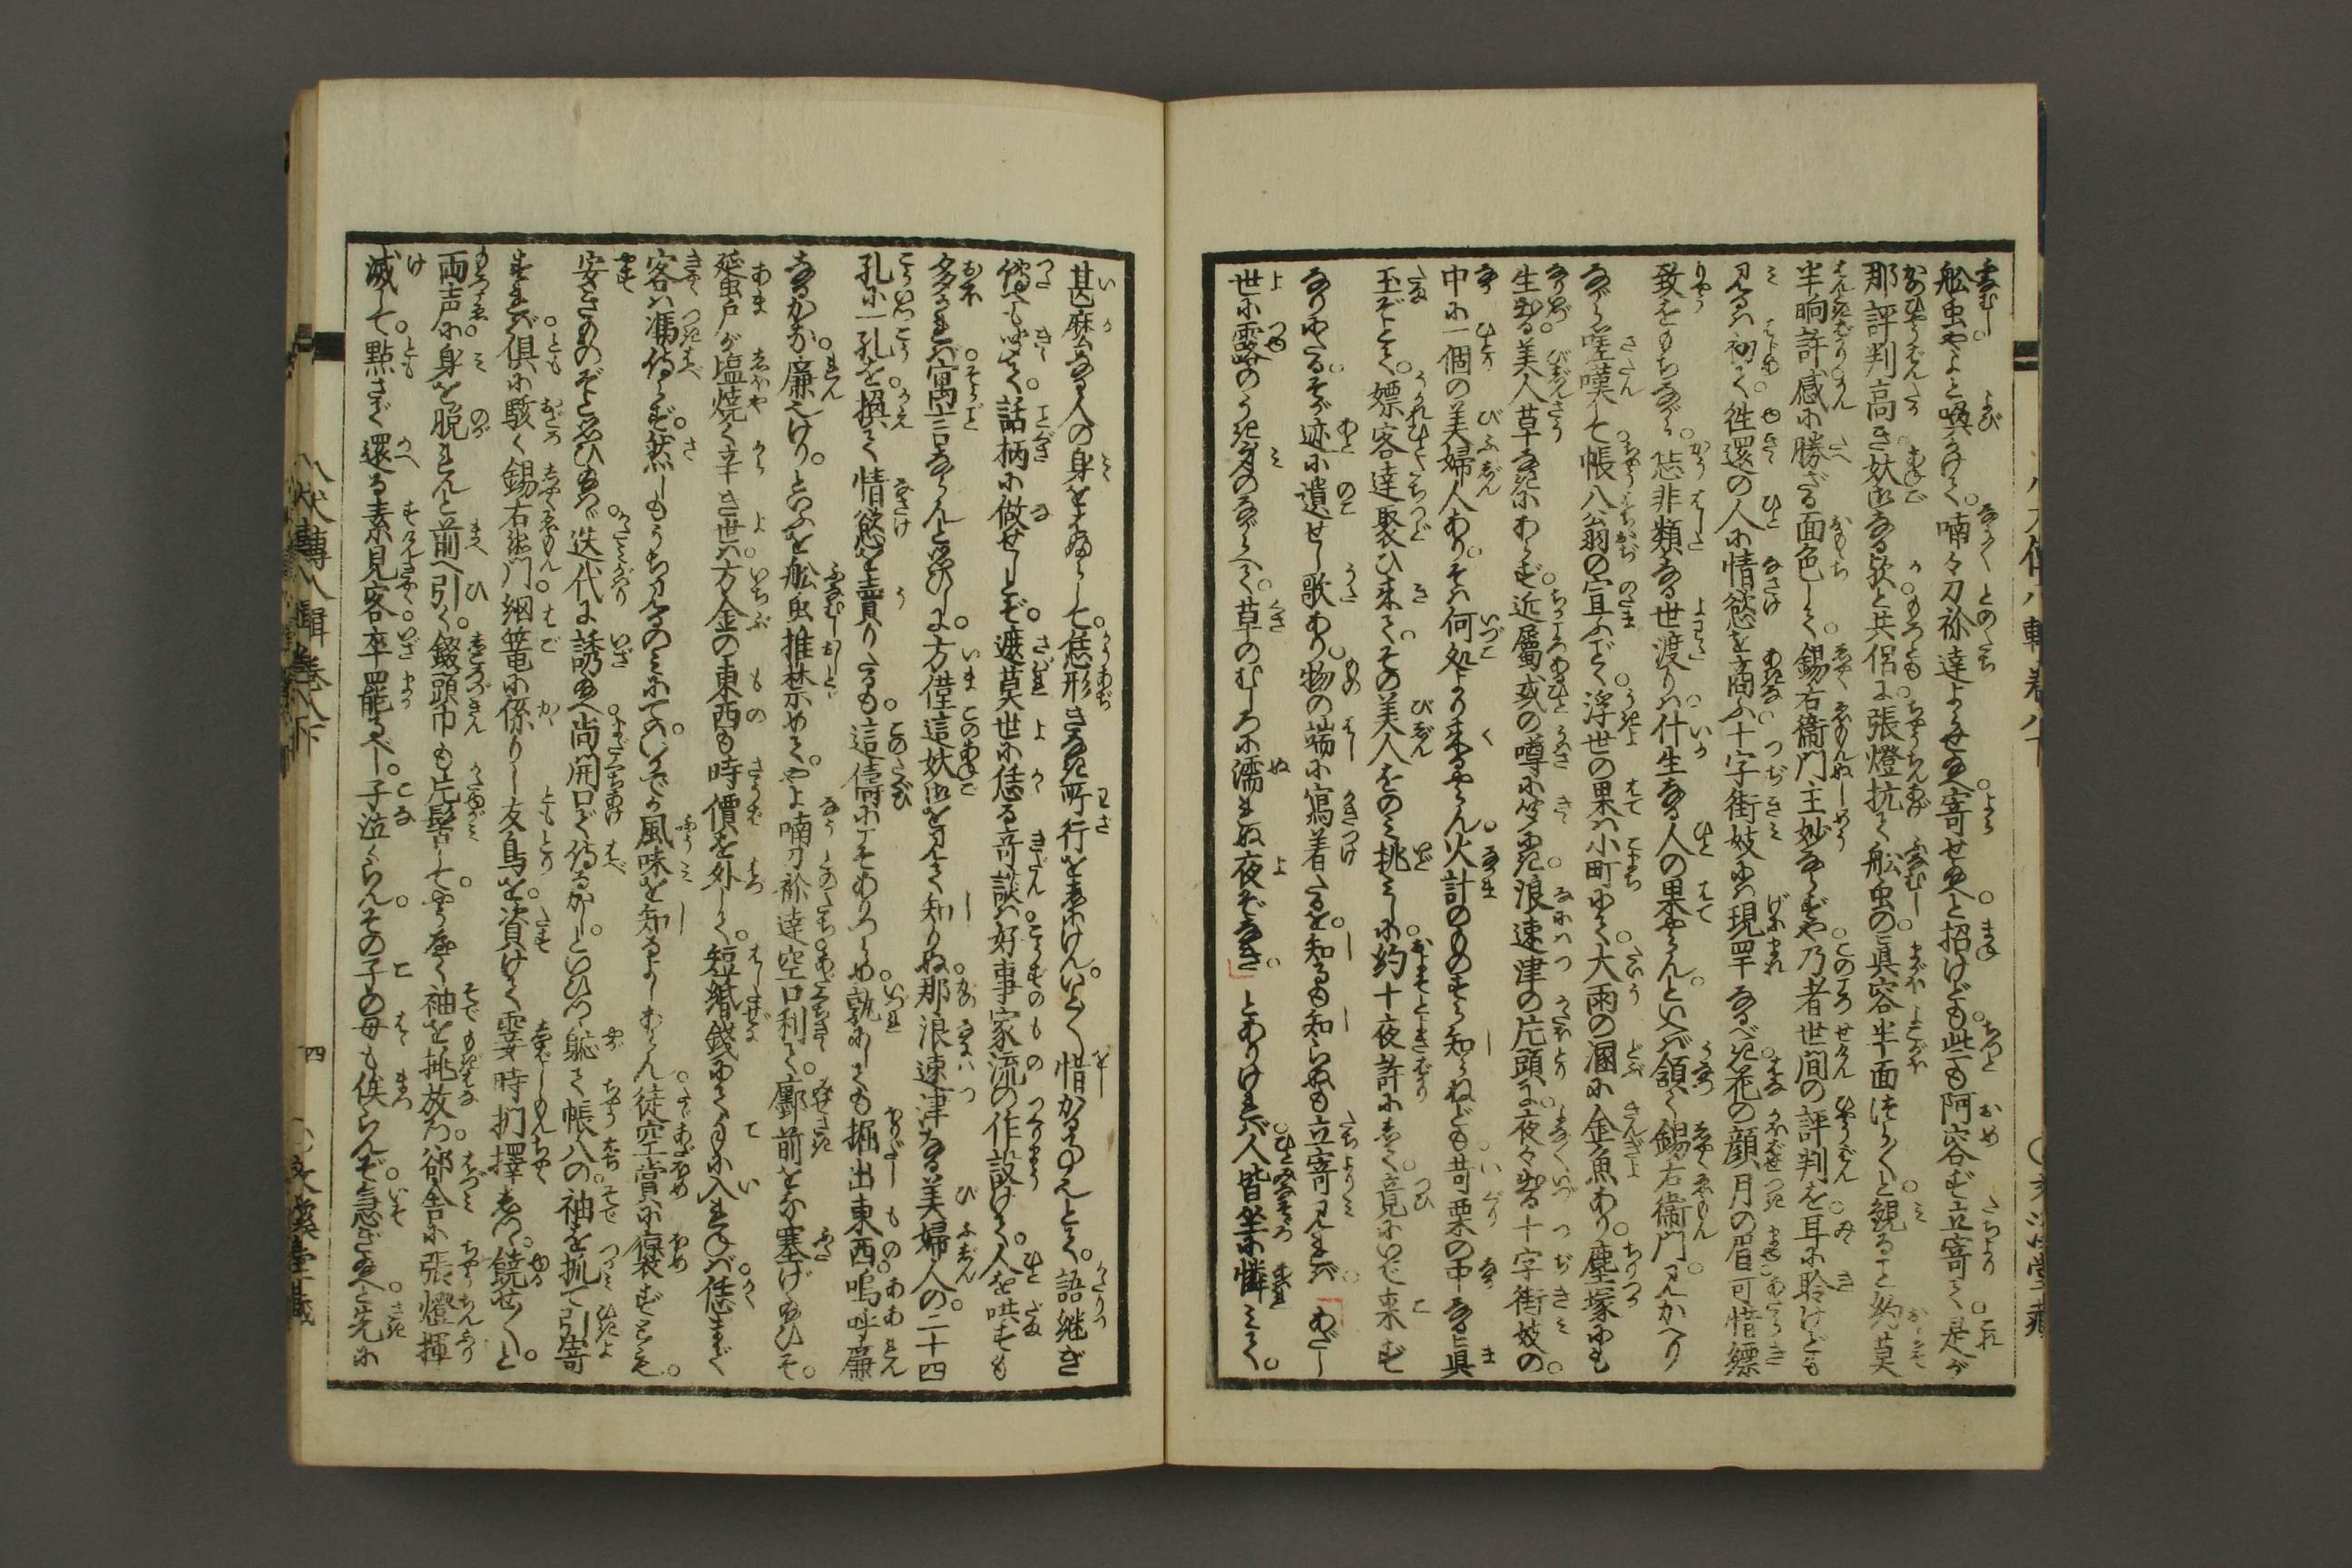 舩虫やよと喚かけて。喃々刀祢達よらせ給へ寄せ給へと招けども。些も阿容ず立寄て。是が
那評判高き妖嬌なる欤と共侶に。張燈抗て舩虫の。真容半面つく〴〵と観ること約莫
半晌許。感に勝ざる面色して。錫右衛門主妙ならずや。乃者世間の評判を。耳に聆けども
見るは初て。徃還の人に情慾を商ふ。十字街妓には現罕なるべき。花の顔月の眉可惜縹
致をもちながら。恁非類なる世渡りは。什生なる人の果やらん。といへば頷く錫右衛門。見かへり
ながら嗟嘆して。帳八翁の宣ふごとく。浮世の果は小町にて。大雨の溷に金魚あり。塵塚にも
生出る。美人草なきにあらず。近属或の噂に聞にき。浪速津の片頭に。夜々出る十字街妓の。
中に一個の美婦人あり。そは何処より来るやらん。火計のものすら知らねども。苛栗の中なる真
玉ぞとて。嫖客達聚ひ来て。その美人をのみ挑みしに。約十夜許にして。竟にいで来ず
なりにたる。そが迹に遺せし歌あり。物の端に寫着たるを。知るも知らぬも立寄見れば。「あだし
世に露のうき身のながらへて。草のむしろに濡れぬ夜ぞなき。」とありければ。人皆坐に憐みて。
甚麼なる人の身をはふらして。恁形きなき所行をしけん。いとく惜かるものとて。語継ぎ
傳へも聞て。話柄に做せしとぞ。遮莫世に恁る奇談は。好事家流の作設けて。人を哄すも
多かれば。寓言ならんと思ひしに。方僅這妖嬌を見て知りぬ。那浪速津なる美婦人の。二十四
孔に一孔を損て。情慾を賣りたるも。這儔にこそありつらめ。孰れにしても掘出東西。嗚呼廉
なるかな。廉也けり。といふを舩虫推禁めて。やよ喃刀祢達空口利て。鄽前をな塞げ給ひそ。
蜑戸が塩焼く辛き世は。方金の東西も時價を外して。短緡錢にて手に入れば。恁まで
客は馮侍らず。然しもうち見るのみにては。いかでか風味を知るよしあらん。徒空賞に傍装ずともそ。
安きものぞと思ひ給はゞ。迭代に誘給へ。尚開口で侍るかし。といひつゝ躯て帳八の。袖を抓て引寄
すれば。倶に駭く錫右衛門。網篭に係りし友鳥を。資けて霎時捫擇しつ。饒せ〳〵と
両声に。身を脱れんと前へ引く。錣頭巾も片髻して。やうやく袖を挑放つ。郤含に張燈揮
滅して。點さで還る素見客。卒罷るべし。子泣くらん。その子の母も俟らんぞ。急ぎ給へと先に
八犬傳八輯巻八下
四
文溪堂藏